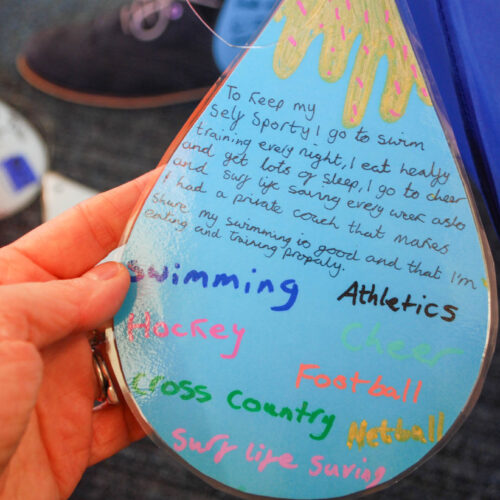 To Keep my
self Sporty I go to swim
training every night, I eat healfy
and get lots of sleep, I go to cheer
and surf life saving every week aslo
I had a private coach that makes
shure my swimming is good and that I'm
eating and training propaly.
Swimming
Athletics
Hockey
Cheer
Football
Cross Country
Netball
Surf life saving